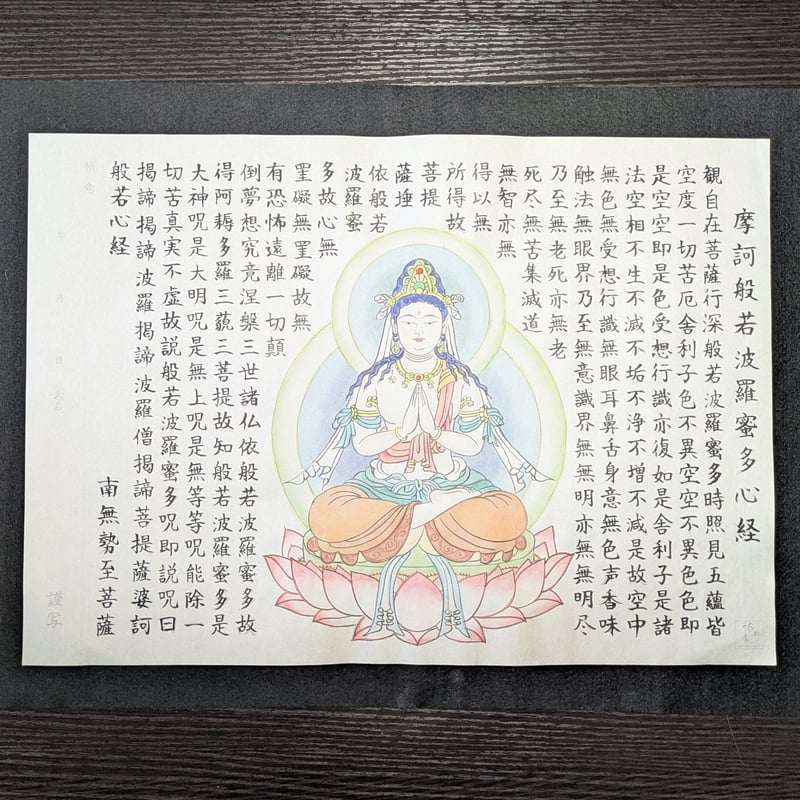 摩訶般若波羅蜜多心経
観自在菩薩行深般若波羅蜜多時照見五蘊皆
空度一切苦厄舎利子色不異空空不異色色即
是空空即是色受想行識亦復如是舎利子是諸
法空相不生不滅不垢不浄不増不減是故空中
無色無受想行識無眼耳鼻舌身意無色声香味
触法無眼界乃至無意識界無無明亦無無明尽
乃至無老死亦無老
死尽無苦集滅道
無智亦無
得以無
所得故
菩提
薩埵
依般若
波羅蜜
多故心無
罣礙無罣礙故無
有恐怖遠離一切顛
倒夢想究竟涅槃三世諸仏依般若波羅蜜多故
得阿耨多羅三藐三菩提故知般若波羅蜜多是
大神呪是大明呪是無上呪是無等等呪能除一
切苦真実不虚故説般若波羅蜜多呪即説呪曰
掲諦掲諦波羅掲諦波羅僧掲諦菩提薩婆訶
般若心経
南無勢至菩薩
願意
年 月 日 氏名
謹写